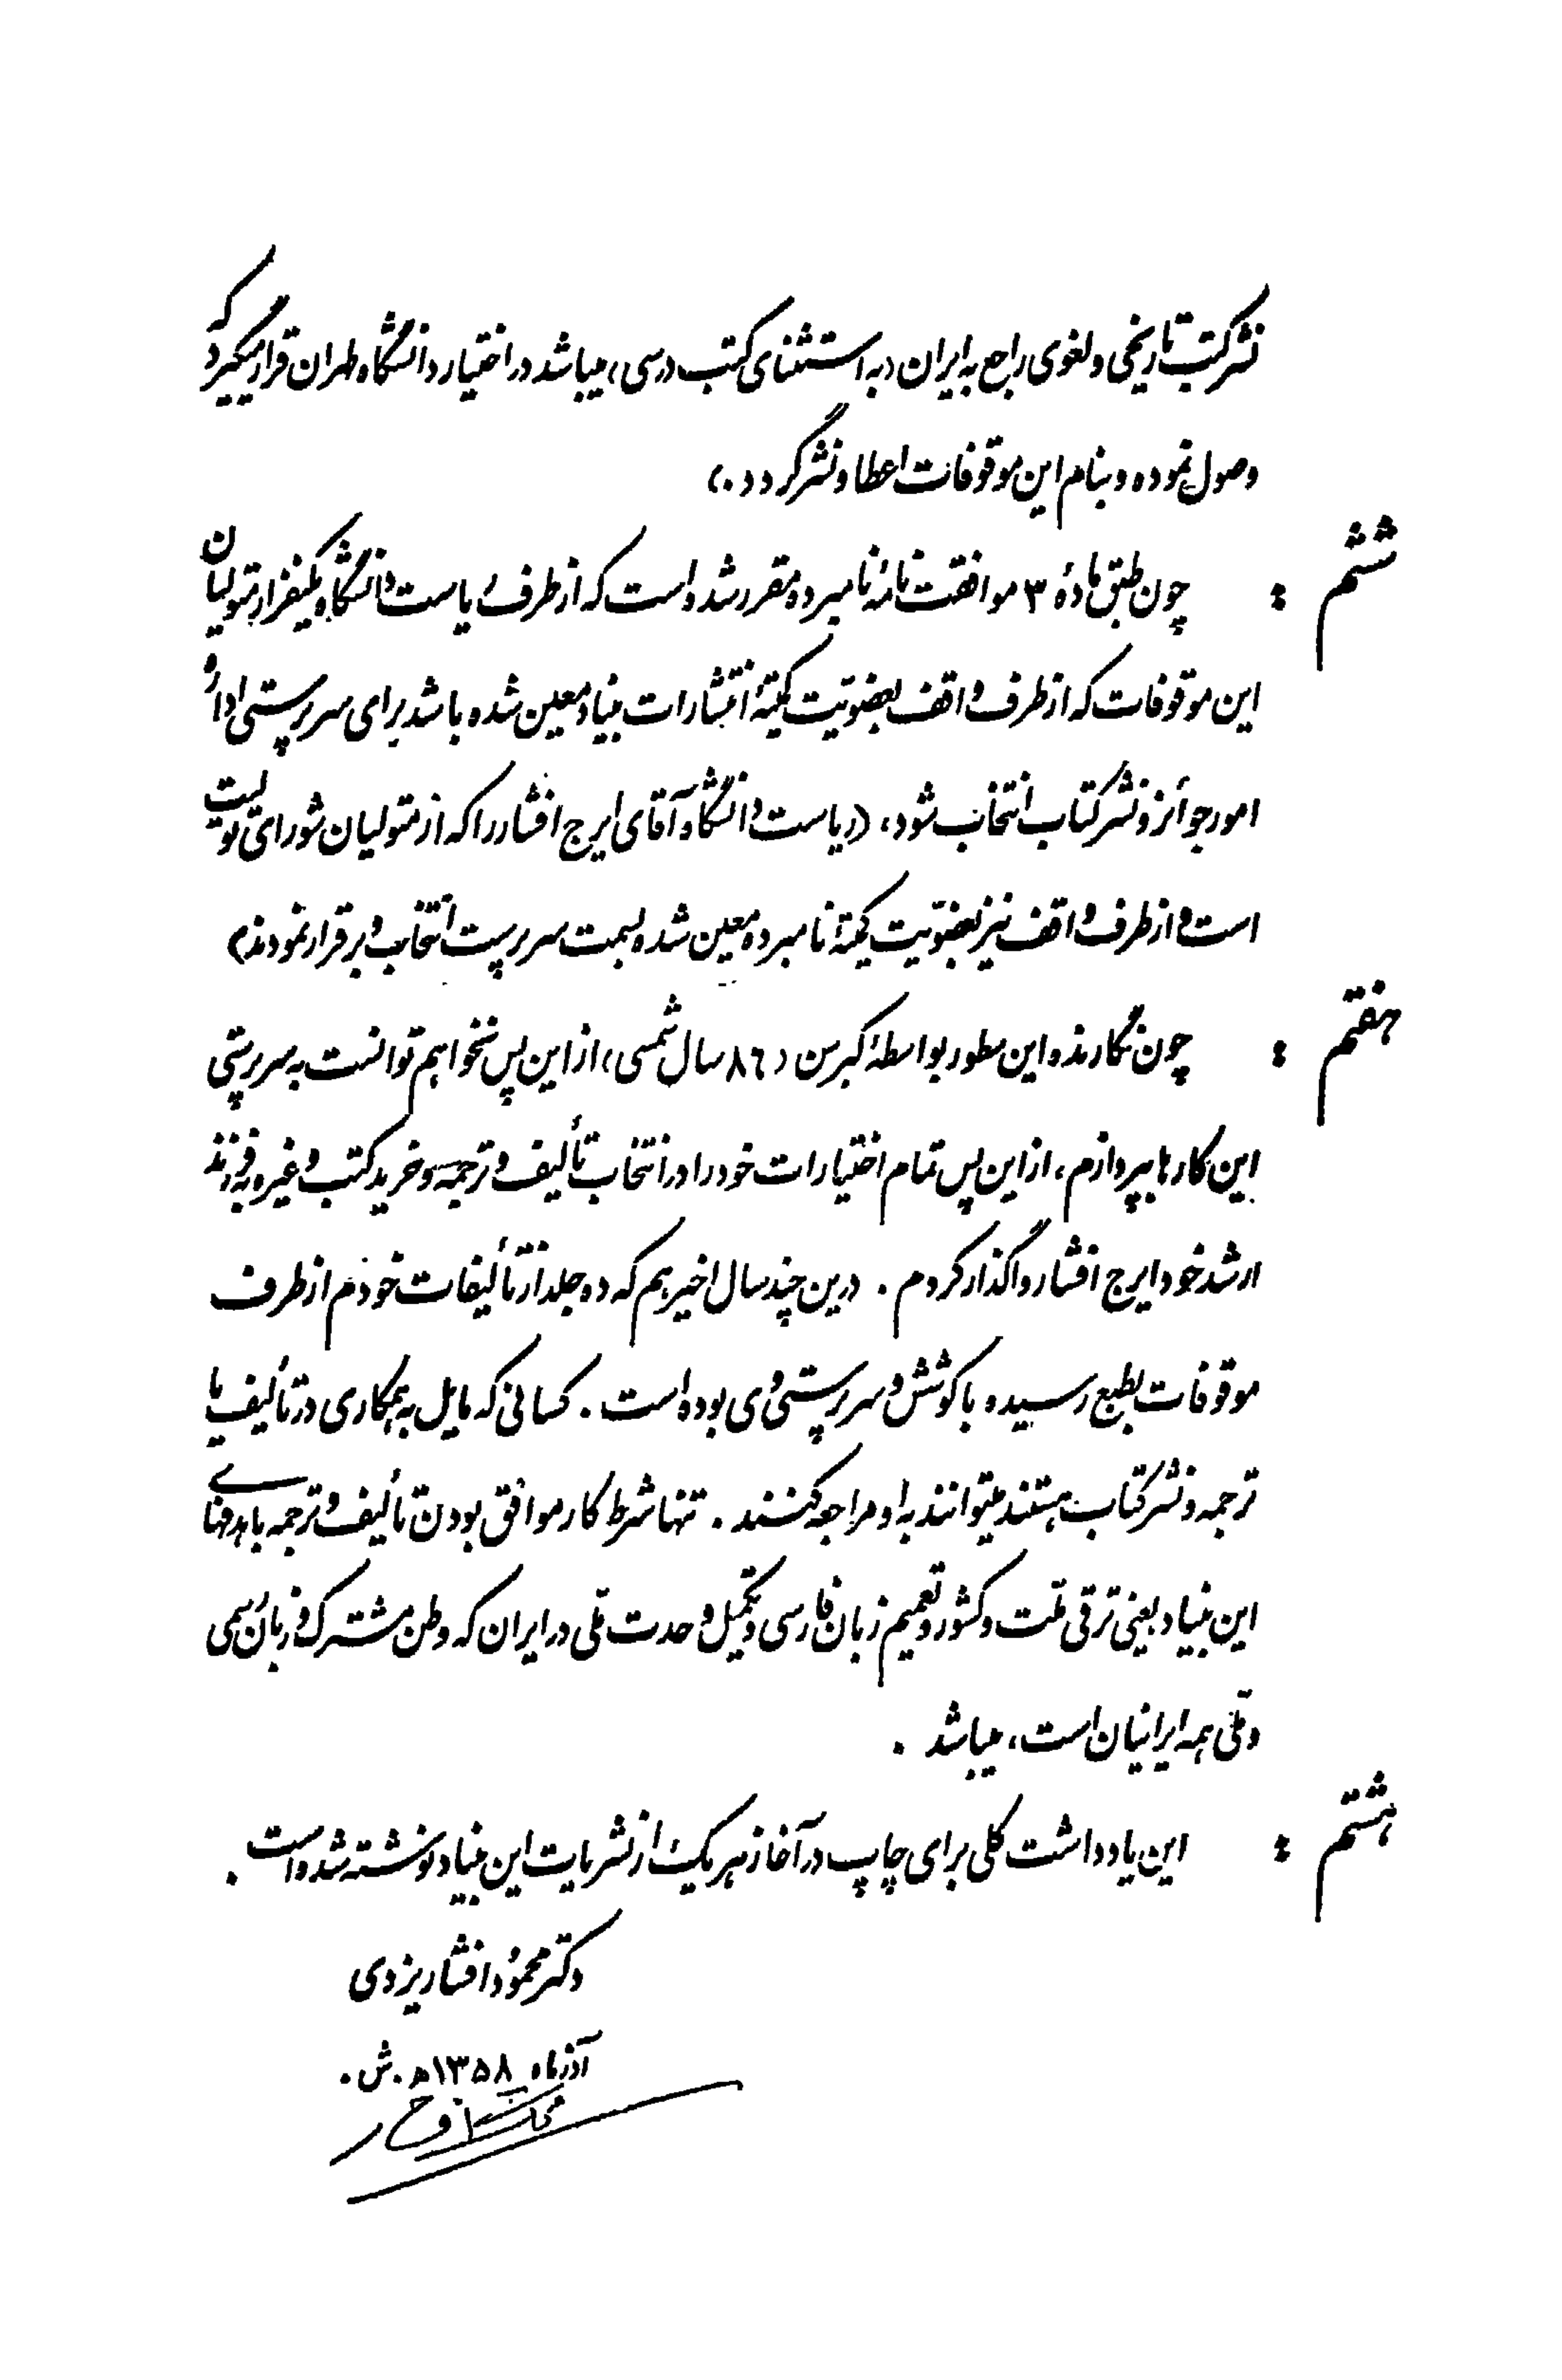 نشر کتب تاریخی و لغوی راجع به ایران (به استثنای کتب درسی) میباشد در اختیار دانشگاه طهران قرار میگیرد که
وصول نموده و بنام این موقوفات اعطا و نشر گردد.)
ششم : چون طبق مادهٔ ۳ موافقت نامهٔ نامبرده مقرر شده است که از طرف ریاست دانشگاه یکنفر از متولیان
این موقوفات که از طرف واقف بعضویت کمیتهٔ انتشارات بنیاد معین شده باشد برای سرپرستی ادارهٔ
امور جوائز و نشر کتاب انتخاب شود، (ریاست دانشگاه آقای ایرج افشار را که از متولیان شورای تولیت
است و از طرف واقف نیز بعضویت کمیتهٔ نامبرده معین شده بسمت سرپرست انتخاب و برقرار نمودند)
هفتم : چون نگارنده این سطور بواسطهٔ کبر سن (۸۶ سال شمسی) از این پس نخواهم توانست به سرپرستی
این کارها بپردازم، از این پس تمام اختیارات خود را در انتخاب تألیف و ترجمه و خرید کتب و غیره به فرزند
ارشد خود ایرج افشار واگذار کردم . درین چند سال اخیر هم که ده جلد از تألیفات خودم از طرف
موقوفات بطبع رسیده با کوشش و سرپرستی وی بوده است . کسانی که مایل به همکاری در تألیف یا
ترجمه و نشر کتاب هستند میتوانند به او مراجعه کنند . تنها شرط کار موافق بودن تألیف و ترجمه با هدفهای
این بنیاد یعنی ترقی ملت و کشور و تعمیم زبان فارسی و تکمیل وحدت ملی در ایران که وطن مشترک و زبان رسمی
و ملی همه ایرانیان است، میباشد .
هشتم : این یادداشت کلی برای چاپ در آغاز هر یک از نشریات این بنیاد نوشته شده است .
دکتر محمود افشار یزدی
آذرماه ۱۳۵۸ ه . ش .